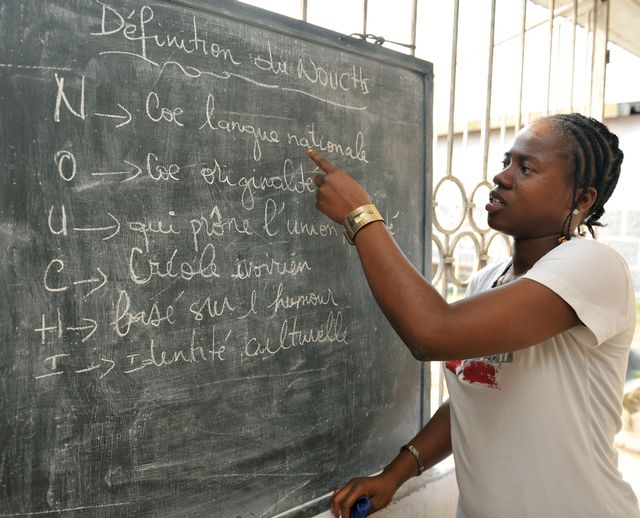 Définition du NOUCHI
N → Coe langue nationale
O → Coe originalité
U → qui prône l'union
C → Créole ivoirien
H → basé sur l'humour
I → Identité culturelle